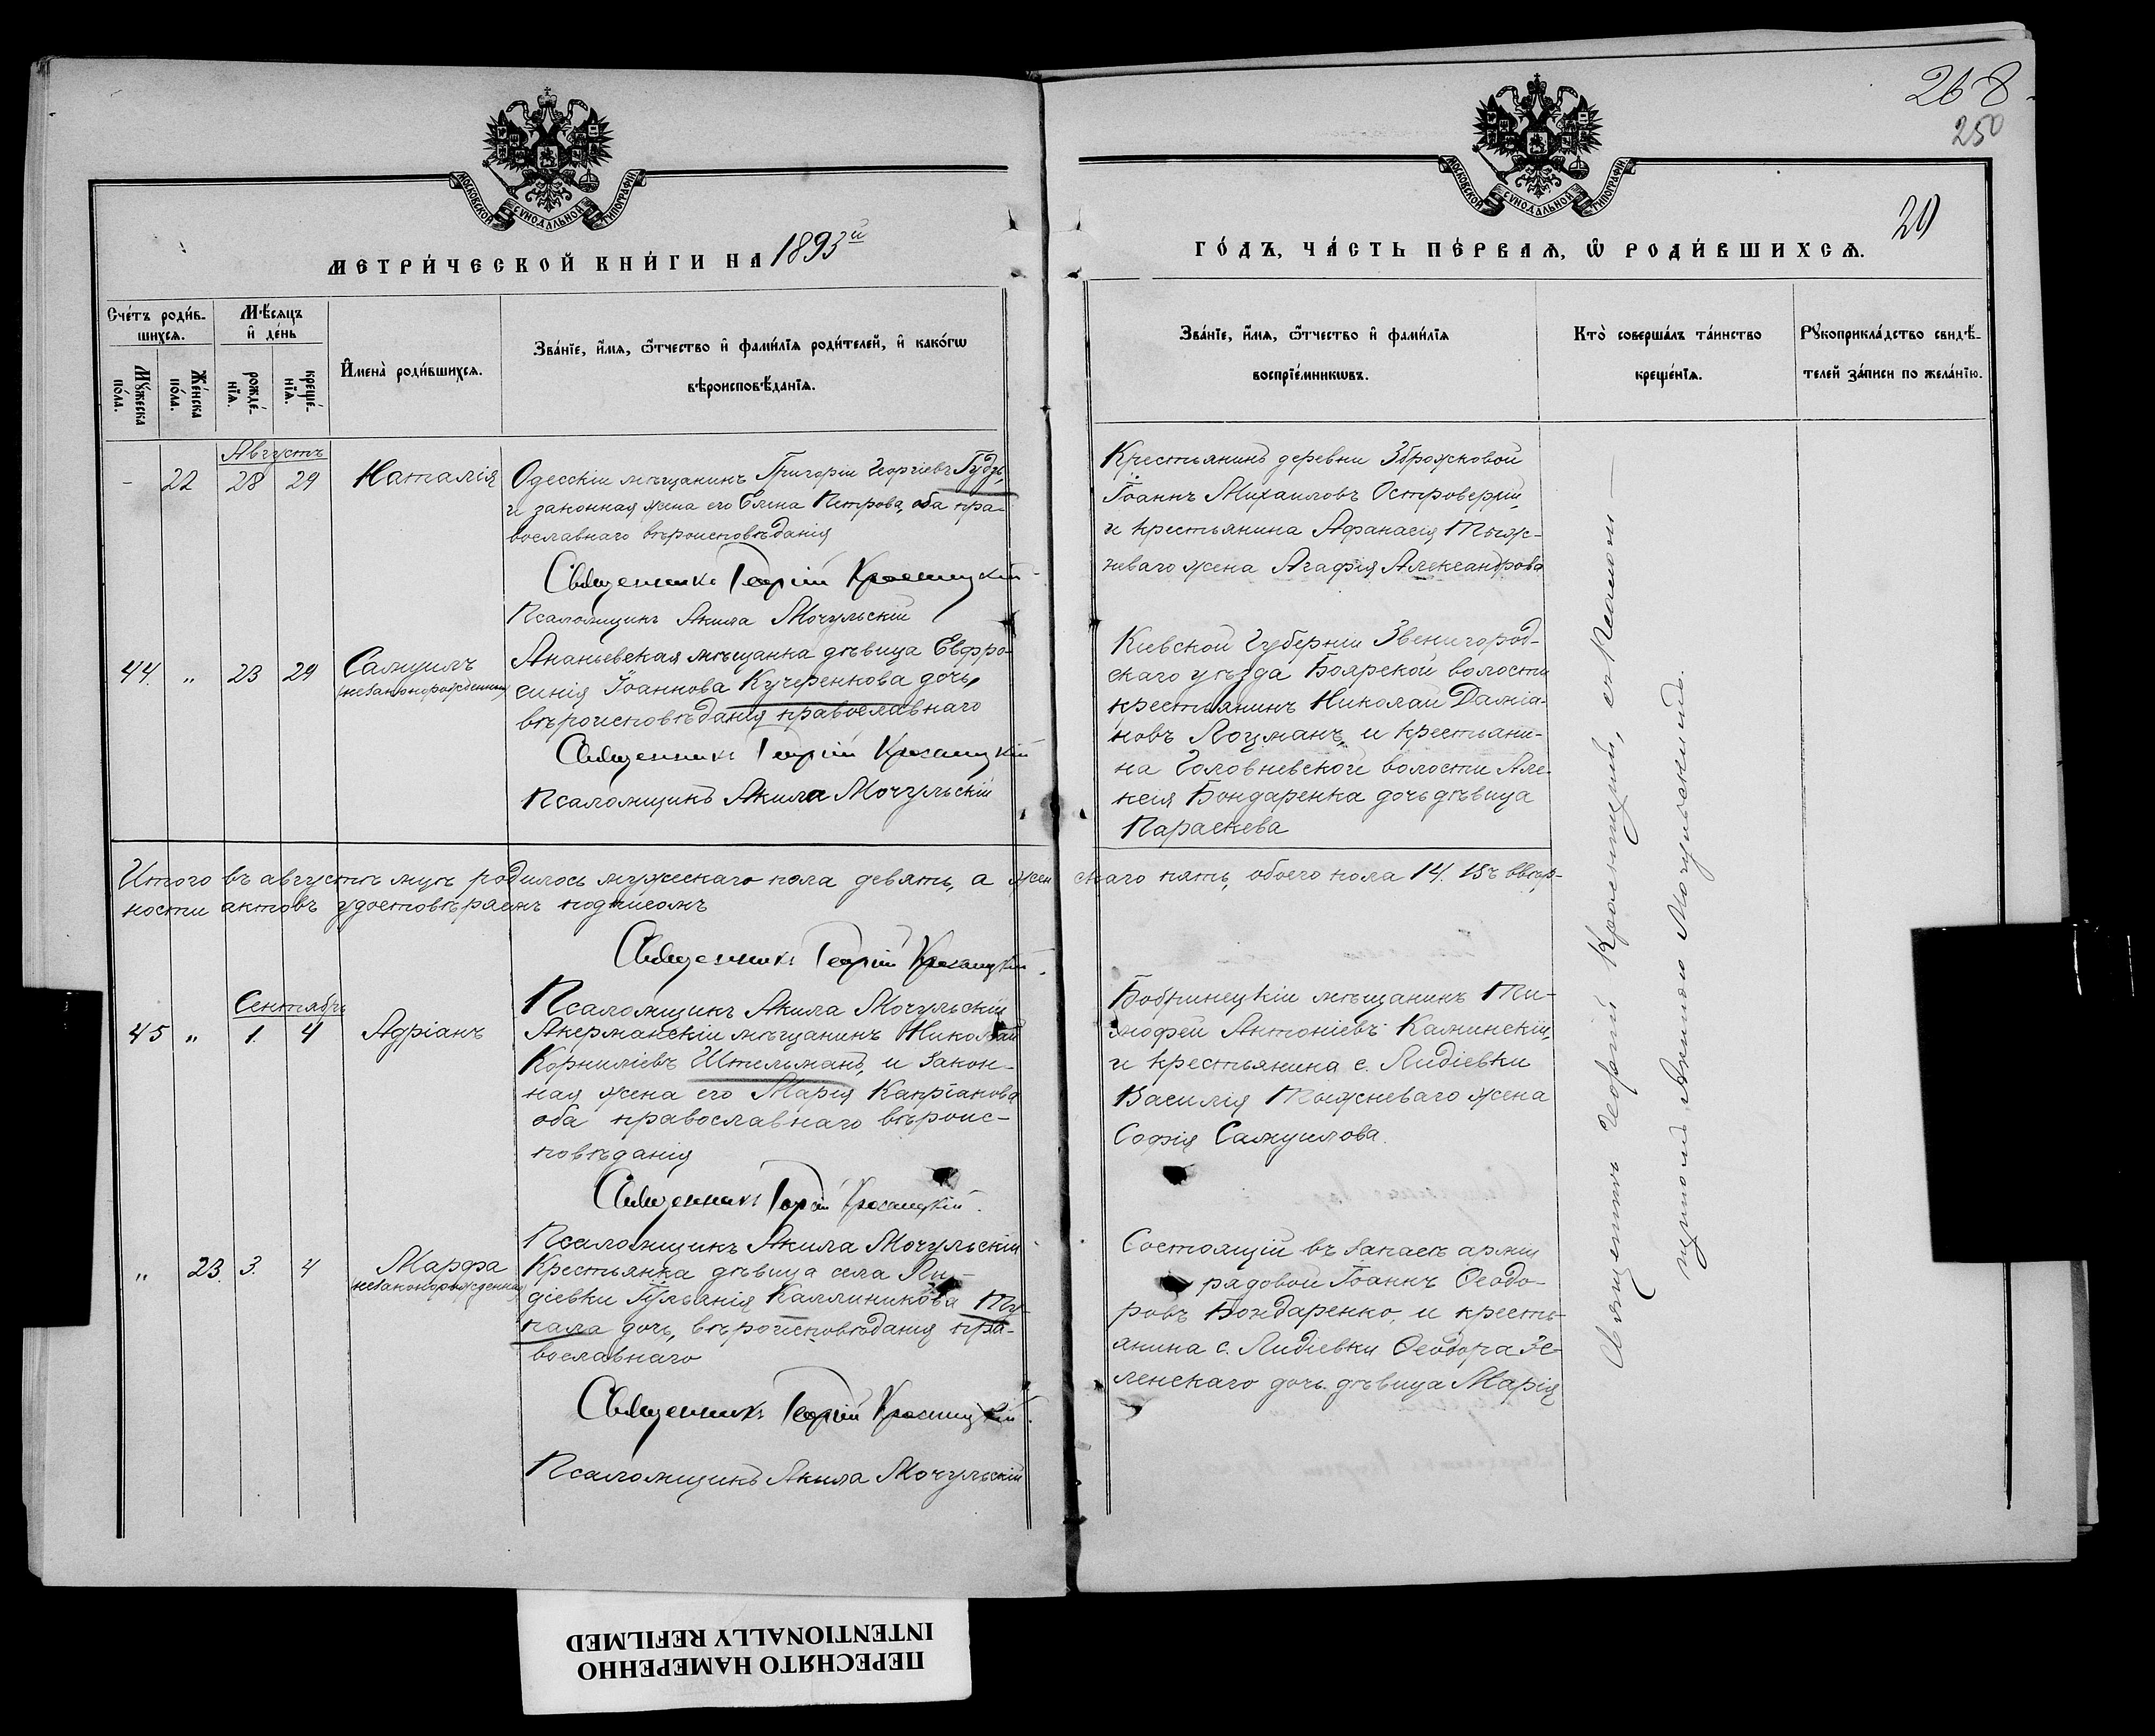 268
250
20
МОСКОВСКОЙ СѴНОДАЛЬНОЙ ТИПОГРАФІИ
МОСКОВСКОЙ СѴНОДАЛЬНОЙ ТИПОГРАФІИ
МЕТРИ́ЧЕСКОЙ КНИ́ГИ НА 1893й
ГО́ДЪ, ЧА́СТЬ ПЕ́РВАѦ, Ѡ РОДИ́ВШИХСѦ.
Сче́тъ роди́в-
шихсѧ.
Мꙋ́жеска по́ла.
Же́нска по́ла.
Мѣ́сяцъ
и де́нь
рожде́-нїѧ.
креще́-нїѧ.
Имена̀ роди́вшихсѧ.
Зва́нїе, и́мѧ, ѻ́тчество и фами́лїѧ роди́телей, и како́гѡ
вѣроисповѣ́данїѧ.
Зва́нїе, и́мѧ, ѻ́тчество и фами́лїѧ
воспрїе́мникѡвъ.
Кто̀ соверша́лъ та́инство
креще́нїѧ.
Рꙋкоприкла́дство свидѣ́-
телей за́писи по жела́нїю.
Августъ
- 22 28 29 Наталія
Одесскій мѣщанинъ Григорій Георгіевъ Гудзь,
и законная жена его Елена Петрова, оба пра-
вославнаго вѣроисповѣданія
Священникъ Георгій Красницкій
Псаломщикъ Акила Мочульскій
Крестьянинъ деревни Зброжковой
Іоаннъ Михаиловъ Островерхій,
и крестьянина Афанасія Тыж-
неваго жена Агафія Александрова
44. " 23 29 Самуилъ
(незаконорожденный)
Ананьевская мѣщанка дѣвица Евфро-
синія Іоаннова Кучеренкова дочь,
вѣроисповѣданія православнаго
Священникъ Георгій Красницкій
Псаломщикъ Акила Мочульскій
Кіевской Губерніи Звенигород-
скаго уѣзда Боярской волости
крестьянинъ Николай Даміа-
новъ Лоцманъ, и крестьяни-
на Головневской волости Але-
ксія Бондаренка дочь дѣвица
Параскева
Итого въ августѣ мцѣ родилось мужескаго пола девять, а женскаго пять, обоего пола 14. Въ вѣр-
ности актовъ удостовѣряемъ подписомъ
Священникъ Георгій Красницкій.
Псаломщикъ Акила Мочульскій
Сентябрь
45 " 1. 4 Адріанъ
Акерманскій мѣщанинъ Николай
Корниліевъ Штельманъ, и закон-
ная жена его Марія Капріанова
оба православнаго вѣроис-
повѣданія
Священникъ Георгій Красницкій.
Псаломщикъ Акила Мочульскій
Бобринецкій мѣщанинъ Ти-
мофей Антоніевъ Каминскій,
и крестьянина с. Лидіевки
Василія Тыжневаго жена
Софія Самуилова.
" 23. 3. 4 Марфа
(незаконорожденная)
Крестьянка дѣвица села Ли-
діевки Іуліанія Каллиникова
дочь, вѣроисповѣданія пра-
вославнаго
Священникъ Георгій Красницкій.
Псаломщикъ Акила Мочульскій
Состоящій въ запасѣ арміи
рядовой Іоаннъ Ѳеодо-
ровъ Бондаренко, и кресть-
янина с. Лидіевки Ѳеодора Зе-
ленскаго дочь дѣвица Марія
Священникъ Георгій Красницкій, съ псалом-
щикомъ Акилою Мочульскимъ.
ПЕРЕСНЯТО НАМЕРЕННО
INTENTIONALLY REFILMED